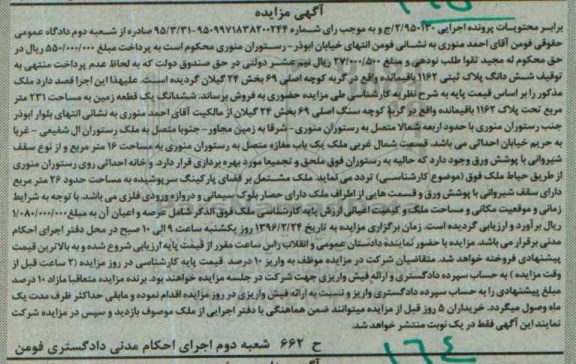 آگهی مزایده
برابر محتویات پرونده اجرایی ۲/۹۵۰۱۳۰/ج و به موجب رای شماره ۹۵۰۹۹۷۱۸۳۸۲۰۰۲۴۴-۹۵/۳/۳۱ صادره از شعبه دوم دادگاه عمومی
حقوقی فومن آقای احمد منوری به نشانی فومن انتهای خیابان ابوذر- رستوران منوری محکوم است به پرداخت مبلغ ۵۵۰/۰۰۰/۰۰۰ ریال در
حق محکوم له مجید تقوا طلب نودهی و مبلغ ۲۷/۰۰۰/۵۰۰ ریال نیم عشر دولتی در حق صندوق دولت که به لحاظ عدم پرداخت منتهی به
توقیف شش دانگ پلاک ثبتی ۱۱۶۲ باقیمانده واقع در گربه کوچه اصلی ۶۹ بخش ۲۴ گیلان گردیده است. علیهذا این اجرا قصد دارد ملک
مذکور را بر اساس قیمت پایه به شرح نظریه کارشناسی طی مزایده حضوری به فروش برساند. ششدانگ یک قطعه زمین به مساحت ۲۳۱ متر
مربع تحت پلاک ۱۱۶۲ باقیمانده واقع در گربه کوچه سنگ اصلی ۶۹ بخش ۲۴ گیلان از مالکیت آقای احمد منوری به نشانی انتهای بلوار ابوذر
جنب رستوران منوری با حدود اربعه شمالا متصل به رستوران منوری- شرقا به زمین مجاور- جنوبا متصل به ملک رستوران ال شفیعی - غربا
به حریم خیابان احداثی می باشد. قسمت شمال غربی ملک یک باب مغازه متصل به رستوران منوری به مساحت ۱۶ متر مربع و از نوع سقف
شیروانی با پوشش ورق وجود دارد که حالیه به رستوران فوق ملحق و تجمیعا مورد بهره برداری قرار دارد. و خانه احداثی روی رستوران منوری
از طریق حیاط ملک فوق (موضوع کارشناسی) تردد می نماید. ملک مشتمل بر فضای پارکینگ سرپوشیده به مساحت حدود ۲۶ متر مربع
دارای سقف شیروانی با پوشش ورق و قسمت هایی از اطراف ملک دارای حصار بلوک سیمانی و دروازه ورودی فلزی می باشد. با توجه به شرایط
زمانی و موقعیت مکانی و مساحت ملک و کیفیت اعیانی ارزش پایه کارشناسی ملک فوق الذکر شامل عرصه و اعیان آن به مبلغ ۱/۰۸۰/۰۰۰/۰۰۰
ریال برآورد و ارزیابی گردیده است. زمان برگزاری مزایده به تاریخ ۱۳۹۶/۲/۲۴ روز یکشنبه ساعت ۹ الی ۱۰ صبح در محل دفتر اجرای احکام
مدنی برقرار می باشد. مزایده با حضور نماینده دادستان عمومی و انقلاب راس ساعت مقرر از قیمت پایه ارزیابی شروع شده و به بالاترین قیمت
پیشنهادی فروخته خواهد شد. متقاضیان شرکت در مزایده موظف به واریز ۱۰ درصد قیمت پایه کارشناسی در روز مزایده (۲ ساعت قبل از
وقت مزایده) به حساب سپرده دادگستری و ارائه فیش واریزی جهت شرکت در جلسه مزایده خواهند بود. برنده مزایده متعاقبا مازاد ۱۰ درصد
مبلغ پیشنهادی را به حساب سپرده دادگستری واریز و نسبت به ارائه فیش واریزی در روز مزایده اقدام نموده و مابقی حداکثر ظرف مدت یک
ماه وصول میگردد. خریداران ۵ روز قبل از مزایده میتوانند ضمن هماهنگی با دفتر اجرایی از ملک موصوف بازدید و سپس در مزایده شرکت
نمایند این آگهی فقط در یک نوبت منتشر خواهد شد.
ح ۶۶۲ شعبه دوم اجرای احکام مدنی دادگستری فومن
۱۶۴